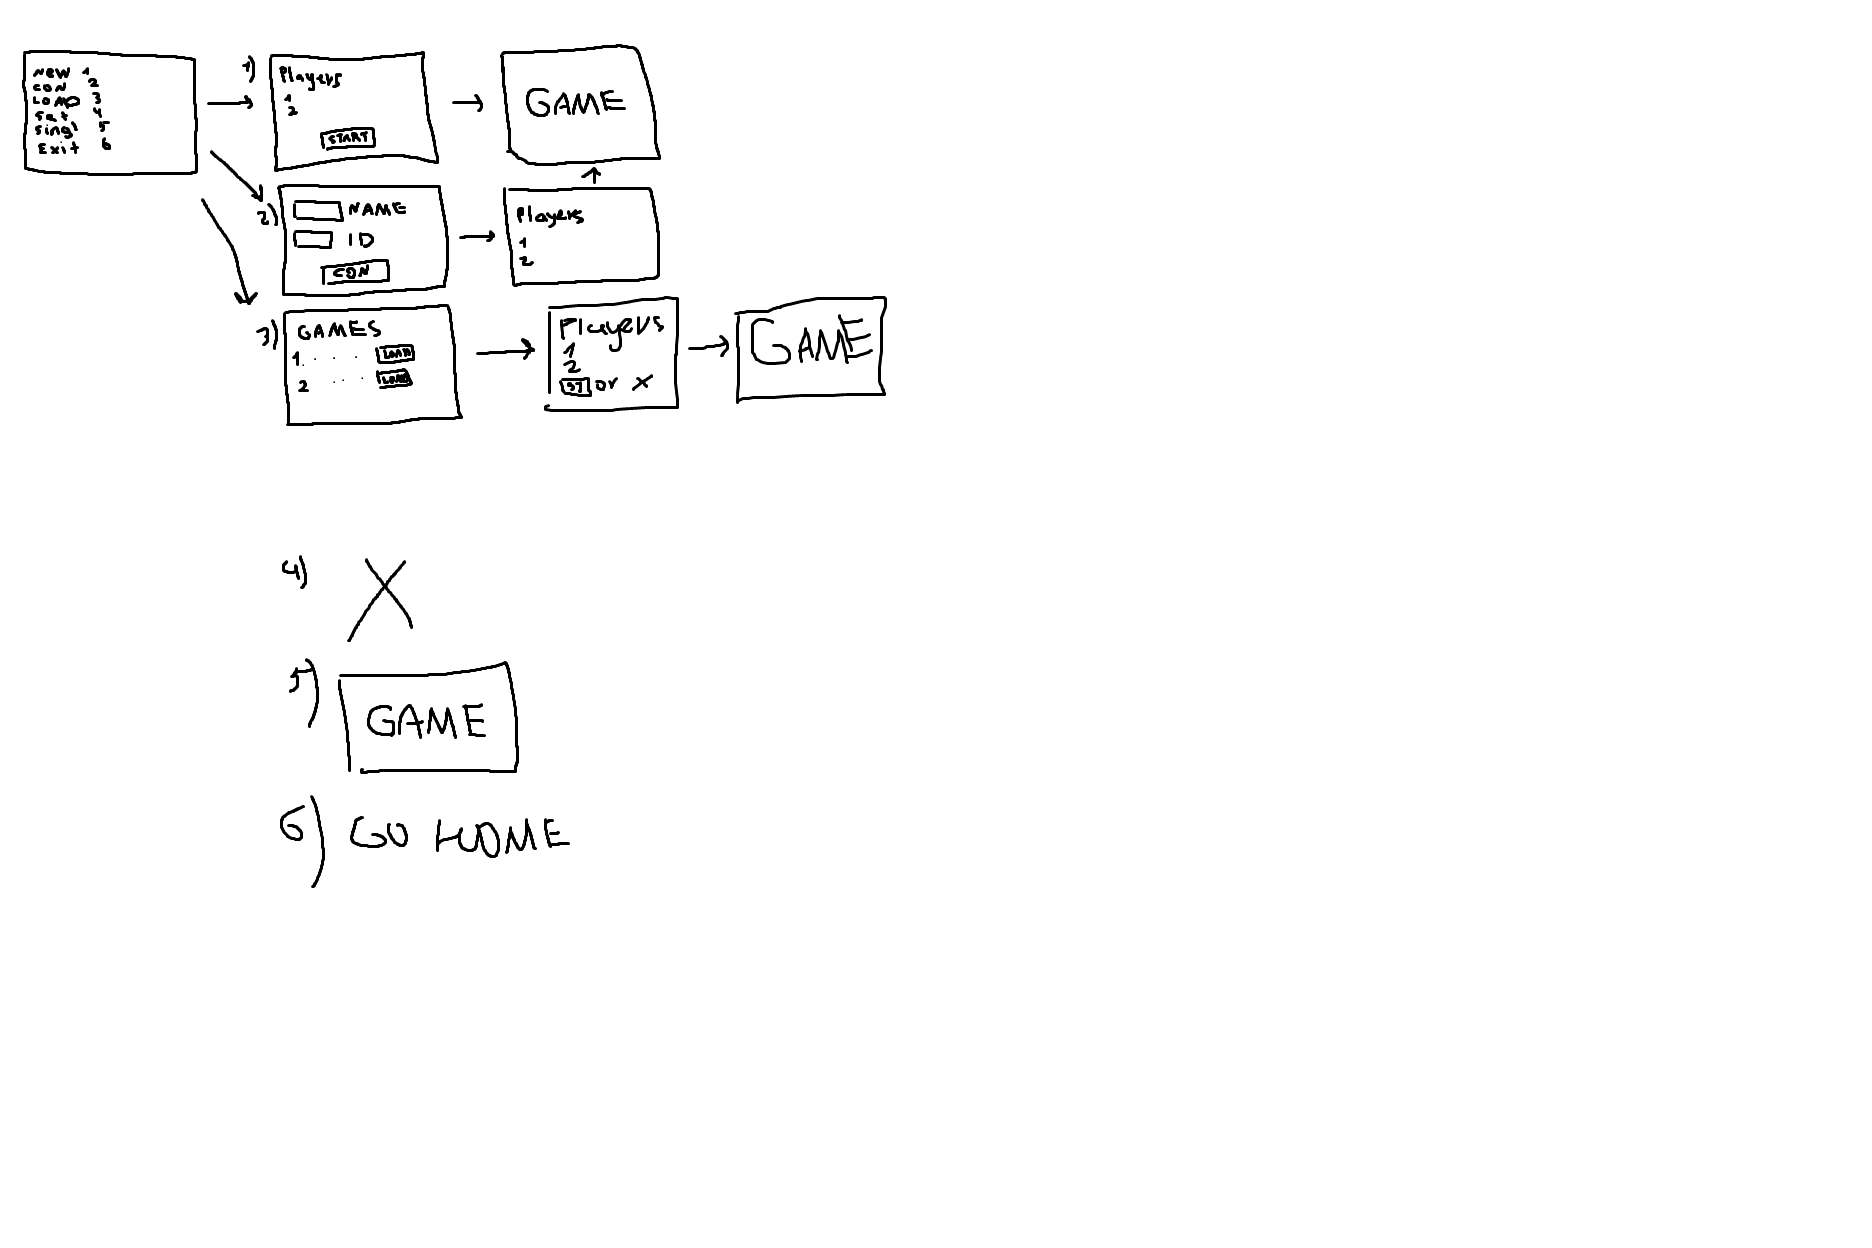 New 1
CON 2
LOAD 3
Set 4
Singl 5
Exit 6
1) Players
1
2
START
GAME
2) NAME
ID
CON
Players
1
2
3) GAMES
1. . . . LOAD
2 . . . LOAD
Players
1
2
ST or X
GAME
4) X
5) GAME
6) GO HOME